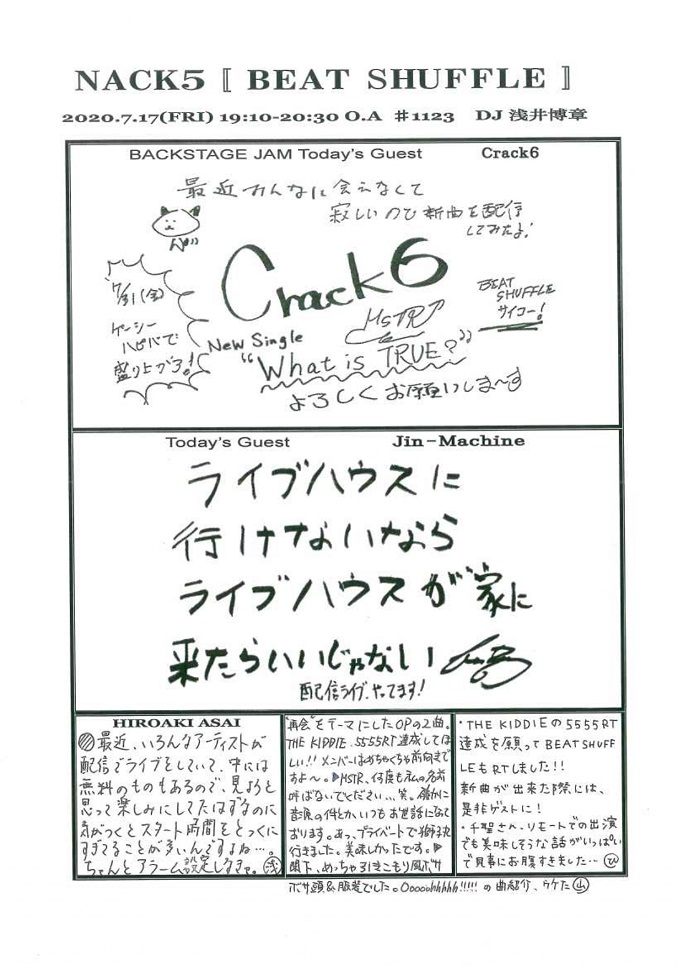 NACK5 〚 BEAT SHUFFLE 〛
2020.7.17(FRI) 19:10-20:30 O.A ♯1123 DJ 浅井博章
BACKSTAGE JAM Today's Guest Crack6
最近みんなに会えなくて
寂しいので新曲を配信
してみたよ!
Crack6
7/31(金)
ケーシー
ハピバで
盛り上がろ!
BEAT
SHUFFLE
サイコー!
MSTR
New Single
"What is TRUE?"
よろしくお願いしま〜す
Today's Guest Jin-Machine
ライブハウスに
行けないなら
ライブハウスが家に
来たらいいじゃない
配信ライブ、やってます!
HIROAKI ASAI
最近、いろんなアーティストが
配信でライブをしていて、中には
無料のものもあるので、見ようと
思って楽しみにしてたはずなのに
気がつくとスタート時間をとっくに
すぎてることが多いんですよね…。
ちゃんとアラーム設定しなきゃ。浅
"再会"をテーマにしたOPの2曲。
THE KIDDIE、5555RT達成してほ
しい!! メンバーはめちゃくちゃ前向きで
すよ〜。▶MSTR、何度も私の名前
呼ばないでください…笑。確かに
音源の件とか、いつもお世話になって
おります。あっ、プライベートで
行きました。美味しかったです。▶
閣下、めっちゃ引きこもり風ボサ
ボサ頭&服装でした。Oooooohhhhh!!!!! の曲紹介、ウケた 山
・THE KIDDIEの5555RT
達成を願ってBEAT SHUFF
LEもRTしました!!
新曲が出来た際には、
是非ゲストに!
・千聖さん、リモートでの出演
でも美味しそうな話がいっぱい
で見事にお腹すきました… ひ